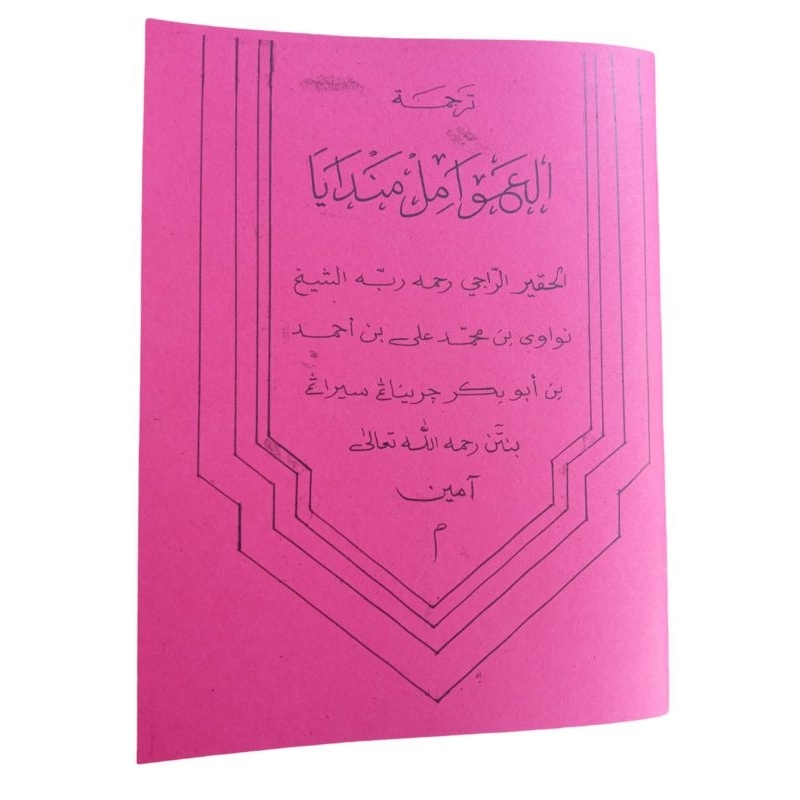 ترجمة
العَوَامِلْ مَنْدَايَا
الحقير الرّاجي رحمه ربّه الشيخ
نواوى بن محمّد على بن أحمد
بن أبو بكر چريناڠ سيراڠ
بنتَن رحمه اللّه تعالىٰ
آمين
م